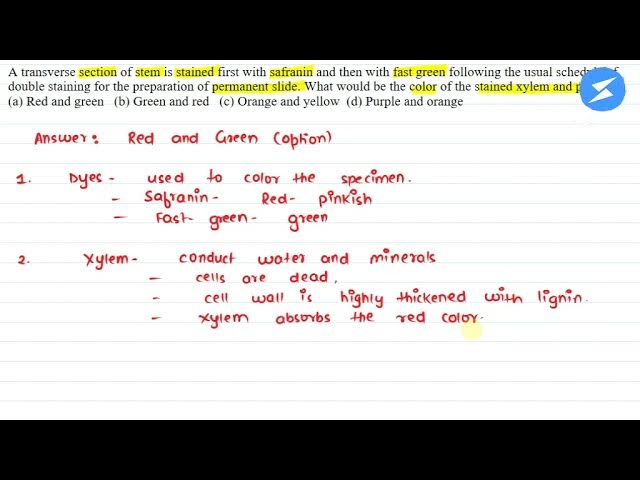 A transverse section of stem is stained first with safranin and then with fast green following the usual schedule of
double staining for the preparation of permanent slide. What would be the color of the stained xylem and
(a) Red and green (b) Green and red (c) Orange and yellow (d) Purple and orange
Answer: Red and Green (option)
1. Dyes - used to color the specimen.
- Safranin - Red - pinkish
- Fast green - green
2. Xylem - conduct water and minerals
- cells are dead.
- cell wall is highly thickened with lignin.
- xylem absorbs the red color.